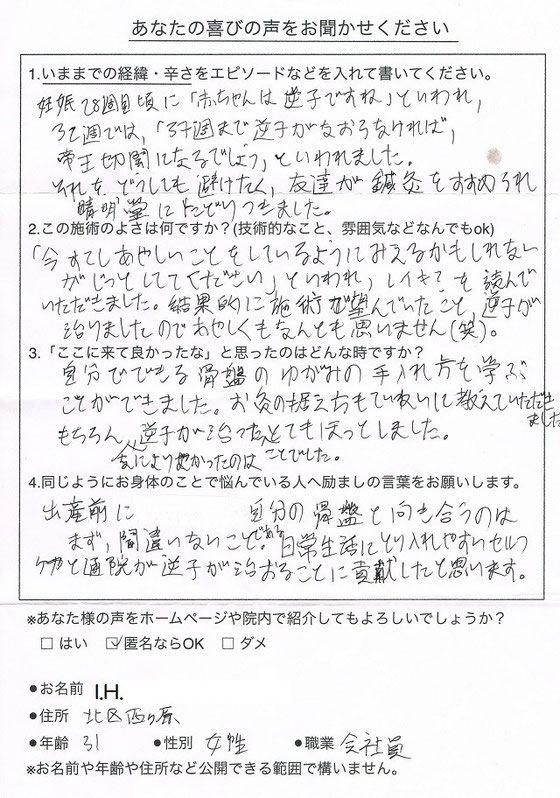 あなたの喜びの声をお聞かせください
1.いままでの経緯・辛さをエピソードなどを入れて書いてください。
妊娠28週目頃に「赤ちゃんは逆子ですね」といわれ,
32週では,「37週まで逆子がなおらなければ,
帝王切開になるでしょう」といわれました。
それをどうしても避けたく,友達が鍼灸をすすめられ
晴明堂にたどりつきました。
2.この施術のよさは何ですか?(技術的なこと、雰囲気などなんでもok)
「今すこしあやしいことをしているようにみえるかもしれない
がじっとしててください」といわれ,レイキを読んで
いただきました。結果的に施術が望んでいたこと,逆子が
治りましたのであやしくもなんとも思いません(笑)。
3.「ここに来て良かったな」と思ったのはどんな時ですか?
自分でできる骨盤のゆがみの手入れ方を学ぶ
ことができました。お灸の据え方もていねいに教えていただき
ました
もちろん,逆子が治ってとてもほっとしました。
なにより良かったのは ことでした。
4.同じようにお身体のことで悩んでいる人へ励ましの言葉をお願いします。
出産前に 自分の骨盤と向き合うのは
まず,間違いないことである。日常生活にとり入れやすいセルフ
ケアと通院が逆子が治おることに貢献したと思います。
※あなた様の声をホームページや院内で紹介してもよろしいでしょうか?
□ はい ☑ 匿名ならOK □ ダメ
●お名前 I.H.
●住所 北区西ヶ原
●年齢 31 ●性別 女性 ●職業 会社員
※お名前や年齢や住所など公開できる範囲で構いません。